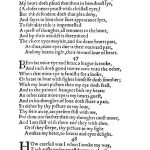 My heart doth plead that thou in him doost lye,
(A closet neuer pearst with christall eyes)
But the defendant doth that plea deny,
And sayes in him their faire appearance lyes.
To side this title is impannelled
A quest of thoughts, all tennants to the heart,
And by their verdict is determined
The cleere eyes moyitie, and the deare hearts part.
As thus, mine eyes due is their outward part,
And my hearts right, their inward loue of heart.
47
BEtwixt mine eye and heart a league is tooke,
And each doth good turnes now vnto the other,
When that mine eye is famisht for a looke,
Or heart in loue with sighes himselfe doth smother;
With my loues picture then my eye doth feast,
And to the painted banquet bids my heart:
An other time mine eye is my hearts guest,
And in his thoughts of loue doth share a part.
So either by thy picture or my loue,
Thy seife away, are present still with me,
For thou nor farther then my thoughts canst moue,
And I am still with them, and they with thee.
Or if they sleepe, thy picture in my sight
Awakes my heart, to hearts and eyes delight.
48
HOw carefull was I when I tooke my way,